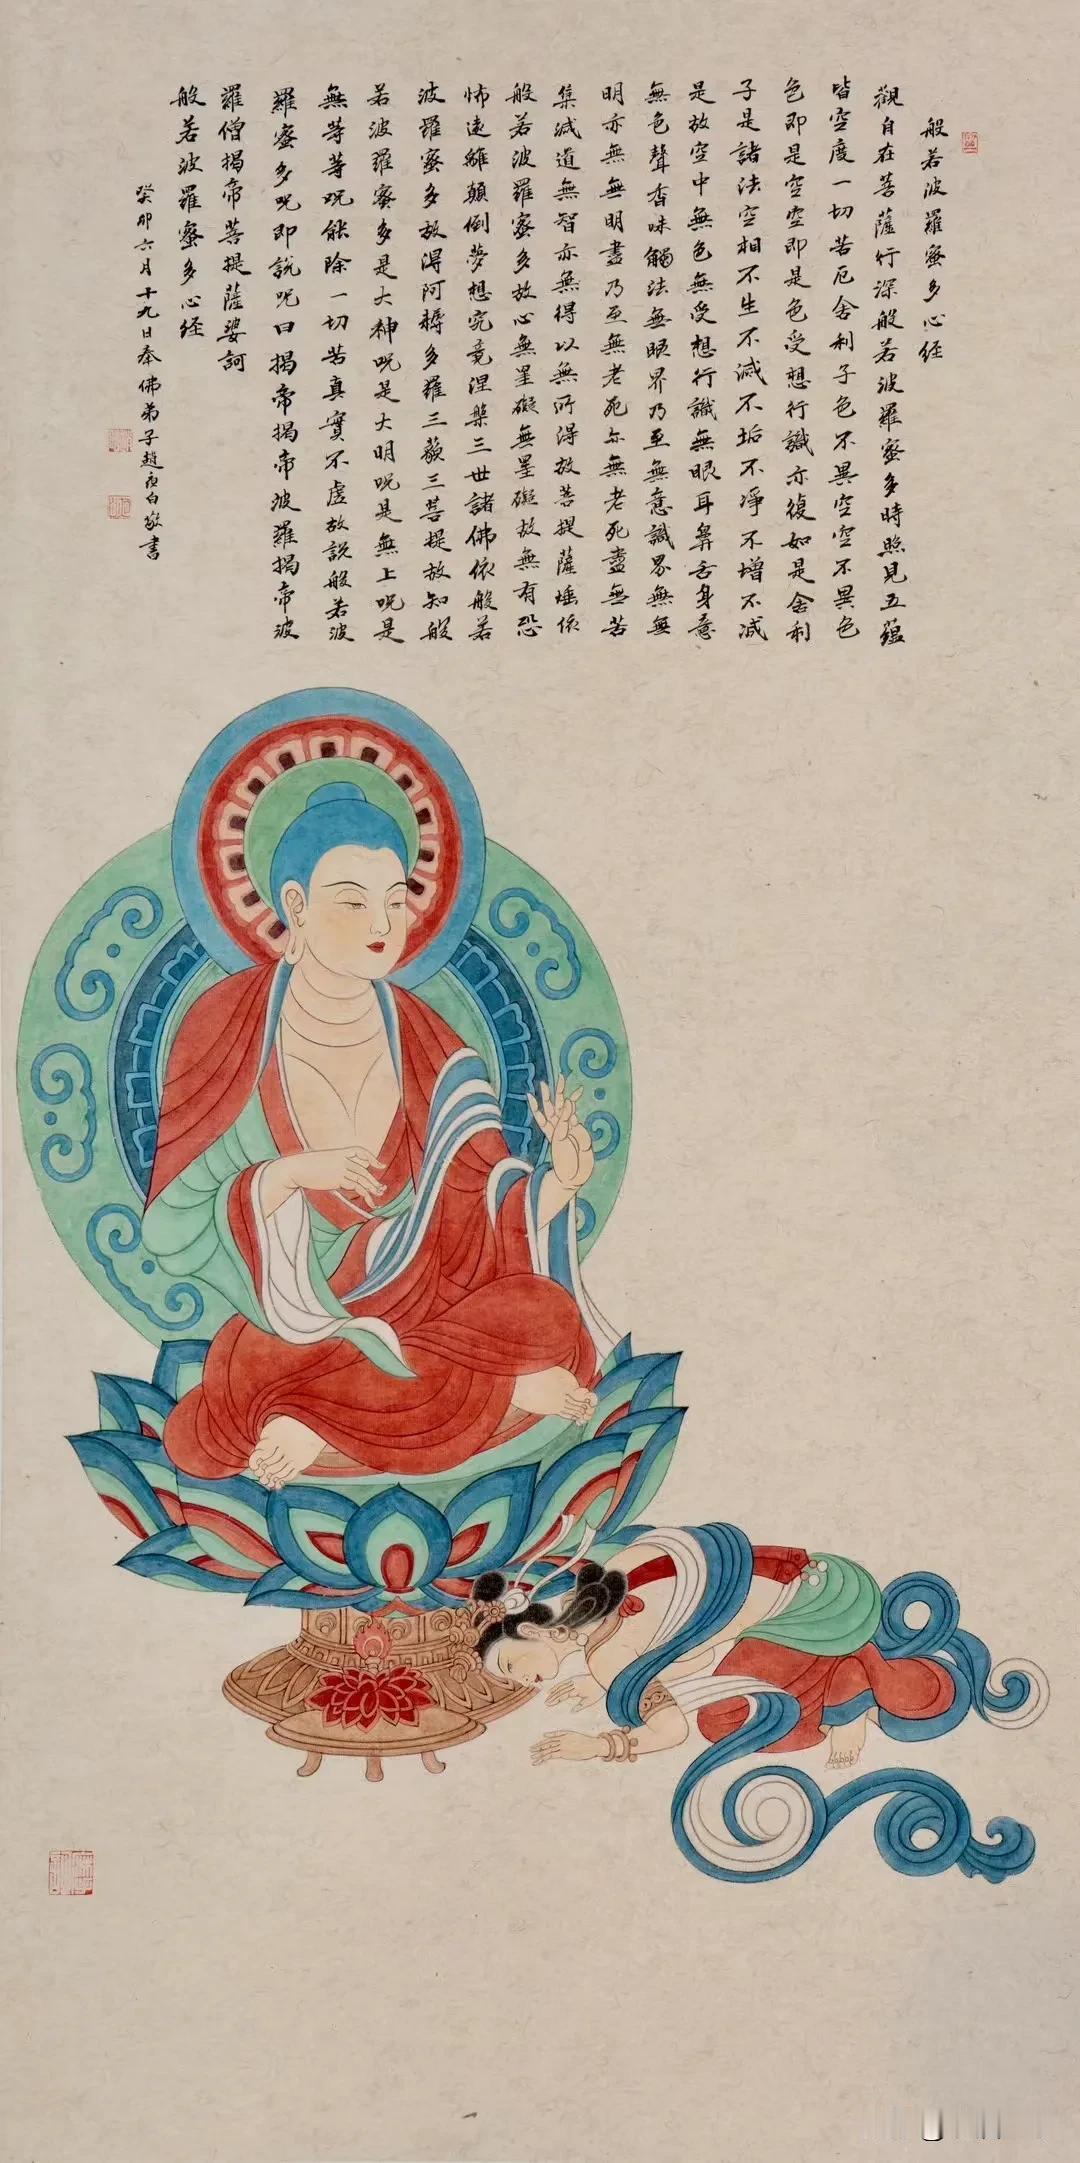 般若波羅蜜多心经
觀自在菩薩行深般若波羅蜜多時照見五蘊
皆空度一切苦厄舍利子色不異空空不異色
色即是空空即是色受想行識亦復如是舍利
子是諸法空相不生不滅不垢不淨不增不減
是故空中無色無受想行識無眼耳鼻舌身意
無色聲香味觸法無眼界乃至無意識界無無
明亦無無明盡乃至無老死亦無老死盡無苦
集滅道無智亦無得以無所得故菩提薩埵依
般若波羅蜜多故心無罣礙無罣礙故無有恐
怖遠離顛倒夢想究竟涅槃三世諸佛依般若
波羅蜜多故得阿耨多羅三藐三菩提故知般
若波羅蜜多是大神呪是大明呪是無上呪是
無等等呪能除一切苦真實不虛故說般若波
羅蜜多呪即說呪曰揭帝揭帝波羅揭帝波
羅僧揭帝菩提薩婆訶
般若波羅蜜多心经
癸卯六月十九日奉佛弟子趙白敬書